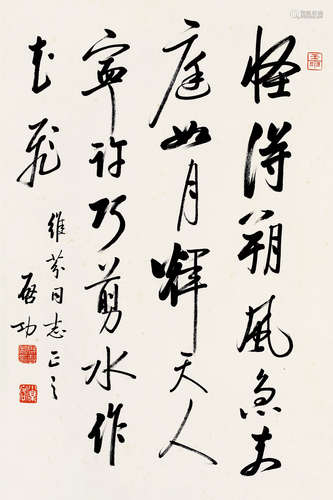 怪得朔風急前
庭如月輝天人
寧許巧剪水作
花飛
維芬同志正之
啟功